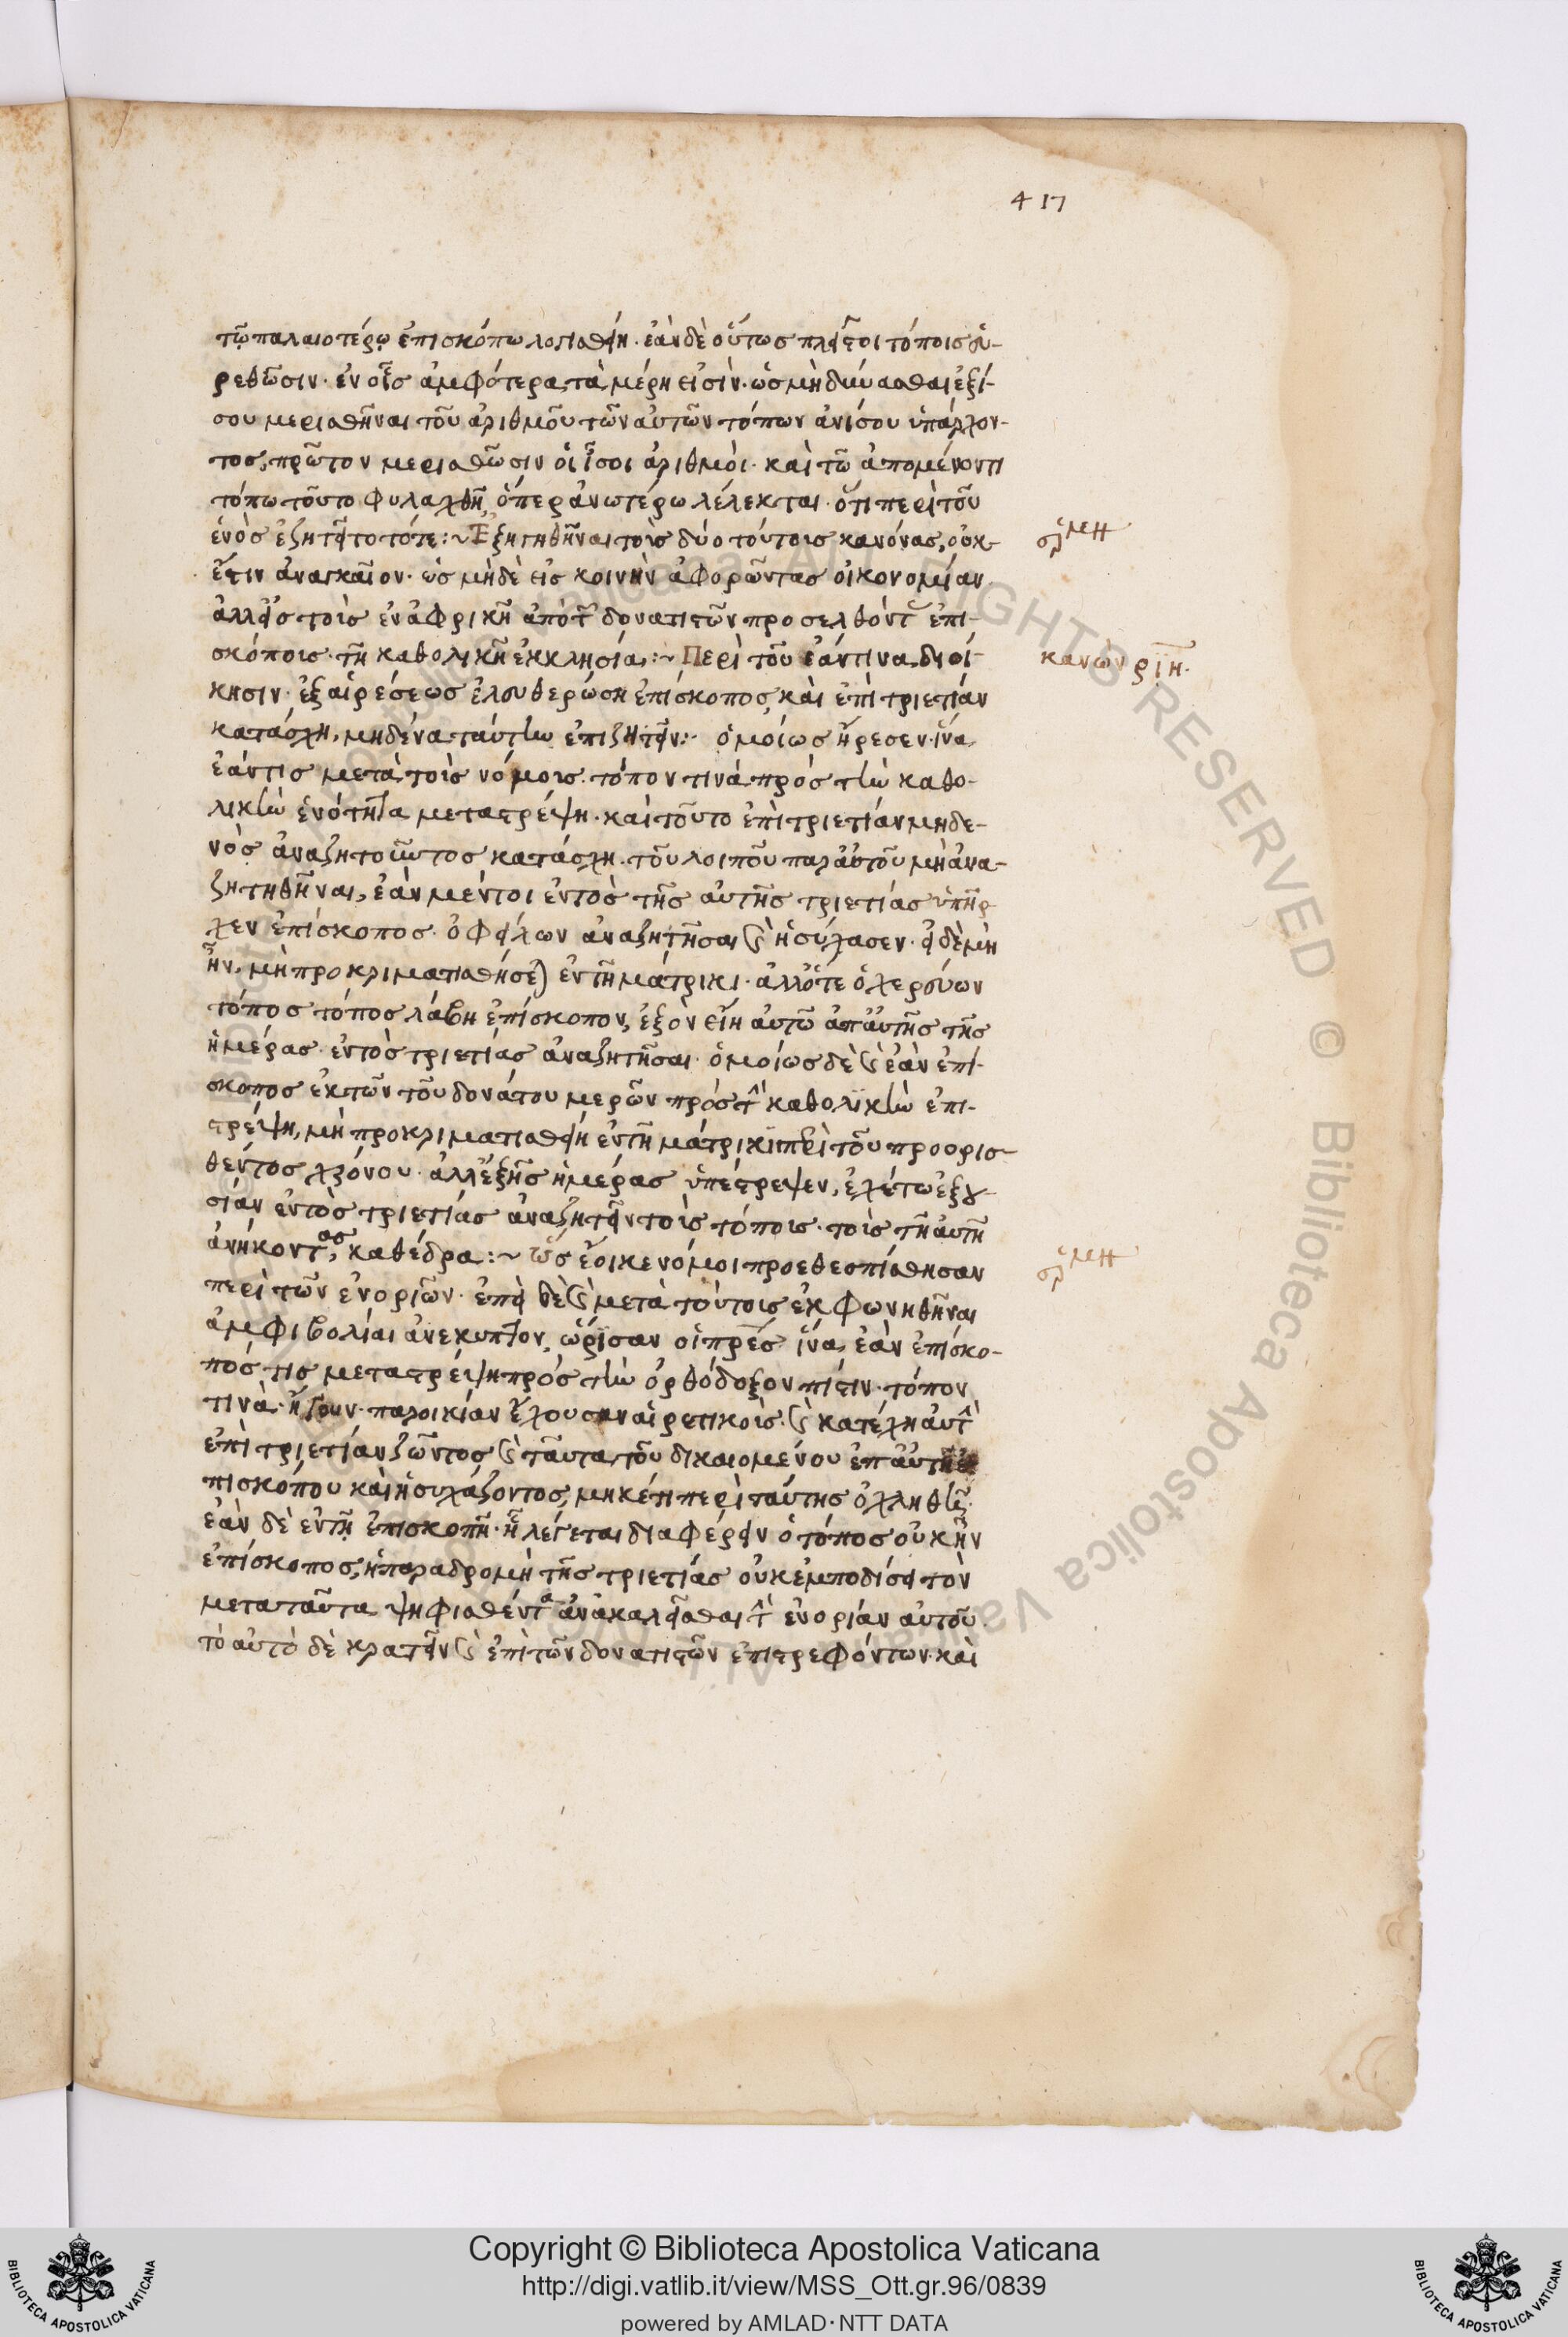 417
τῷ παλαιοτέρῳ ἐπισκόπω λογισθείη. ἐὰν δὲ οὕτως πλεῖστοι τόποις εὑ-
ρεθῶσιν. ἐν οἷς ἀμφότερα τὰ μέρη εἰσὶν. ὡς μὴ δύνασθαι ἐξί-
σου μερισθῆναι τοῦ ἀριθμοῦ τῶν αὐτῶν τόπων ἀνίσου ὑπάρχον-
τος, πρῶτον μερισθῶσιν οἱ ἶσοι ἀριθμὸι. καὶ τῶ ἀπομένοντι
τόπω τοῦτο φυλαχθῆ, ὅπερ ἀνωτέρω λέλεκται. ὅτι περὶ τοῦ
ἑνὸς ἐζητεῖτο τότε :~ Ἐξηγηθῆναι τοὺς δύο τούτους κανόνας, οὐκ
ἔστιν ἀναγκαῖον. ὡς μὴδὲ εἰς κοινὴν ἀφορῶντας οἰκονομίαν
ἀλλ' εἰς τοὺς ἐν ἀφρικῆ ἀπὸ τῶν δονατιστῶν προσελθόντας ἐπι-
σκόπους τῆ καθολικῆ ἐκκλησία :~ Περὶ τοῦ ἐάν τινα διοί-
κησιν. ἐξ αἱρέσεως ἐλευθερώση ἐπίσκοπος, καὶ ἐπὶ τριετίαν
κατάσχη, μηδένα ταύτην ἐπιζητεῖν :~ ὁμοίως ἤρεσεν. ἵνα
ἐάν τις μετὰ τοὺς νόμους. τόπον τινὰ πρὸς τὴν καθο-
λικὴν ἑνότητα μεταστρέψη. καὶ τοῦτο ἐπὶ τριετίαν μηδε-
νὸς ἀναζητοῦντος κατάσχη. τοῦ λοιποῦ παρ' αὐτοῦ μὴ ἀνα-
ζητηθῆναι, ἐὰν μέντοι ἐντὸς τῆς αὐτῆς τριετίας ὑπῆρ-
χεν ἐπίσκοπος. ὀφείλων ἀναζητῆσαι καὶ ἡσύχασεν. εἰ δὲ μὴ
ἦν. μὴ προκριματισθήσεται ἐν τῆ μάτρικι. ἀλλ' ὅτε ὁ χερεύων
τόπος τόπος λάβη ἐπίσκοπον, ἐξὸν εἴη αὐτῶ ἀπ' αὐτῆς τῆς
ἡμέρας. ἐντὸς τριετίας ἀναζητῆσαι. ὁμοίως δὲ καὶ ἐὰν ἐπί-
σκοπος ἐκ τῶν τοῦ δονάτου μερῶν πρὸς τὴν καθολικὴν ἐπι-
στρέψη, μὴ προκριματισθείη ἐν τῆ μάτρικι περὶ τοῦ προορισ-
θέντος χρόνου. ἀλλ' ἐξ ἧς ἡμέρας ὑπέστρεψεν, ἐχέτω ἐξου-
σίαν ἐντὸς τριετίας ἀναζητεῖν τοὺς τόπους. τοὺς τῆ αὐτῆ
ἀνήκοντας, καθέδρα :~ ὡς ἔοικε νόμοι προεθεσπίσθησαν
περὶ τῶν ἐνοριῶν. ἐπεὶ δὲ καὶ μετὰ τὸ τούτους ἐκφωνηθῆναι
ἀμφιβολίαι ἀνέκυπτον, ὥρισαν οἱ πρες ἵνα, ἐὰν ἐπίσκο-
πός τις μεταστρέψη πρὸς τὴν ὀρθόδοξον πίστιν. τόπον
τινὰ. ἤγουν παροικίαν ἔχουσαν αἱρετικοὺς. καὶ κατέχη αὐτὴν
ἐπὶ τριετίαν ζῶντος καὶ ταῦτα τοῦ δικαιομένου ἐπ' αὐτῆ ἐ-
πισκόπου καὶ ἡσυχάζοντος, μηκέτι περὶ ταύτης ὀχληθῆ.
ἐὰν δὲ ἐν τῆ ἐπισκοπῆ. ἧ λέγεται διαφέρειν ὁ τόπος οὐκ ἦν
ἐπίσκοπος, ἡ παραδρομὴ τῆς τριετίας οὐκ ἐμποδίσει τὸν
μετὰ ταῦτα ψηφισθέντα ἀνακαλεῖσθαι τὴν ἐνορίαν αὐτοῦ.
τὸ αὐτὸ δὲ κρατεῖν καὶ ἐπὶ τῶν δονατιστῶν ἐπιστρεφόντων. καὶ
ἑρμη
κανὼν ριη.
ἑρμη
Copyright © Biblioteca Apostolica Vaticana
http://digi.vatlib.it/view/MSS_Ott.gr.96/0839
powered by AMLAD·NTT DATA